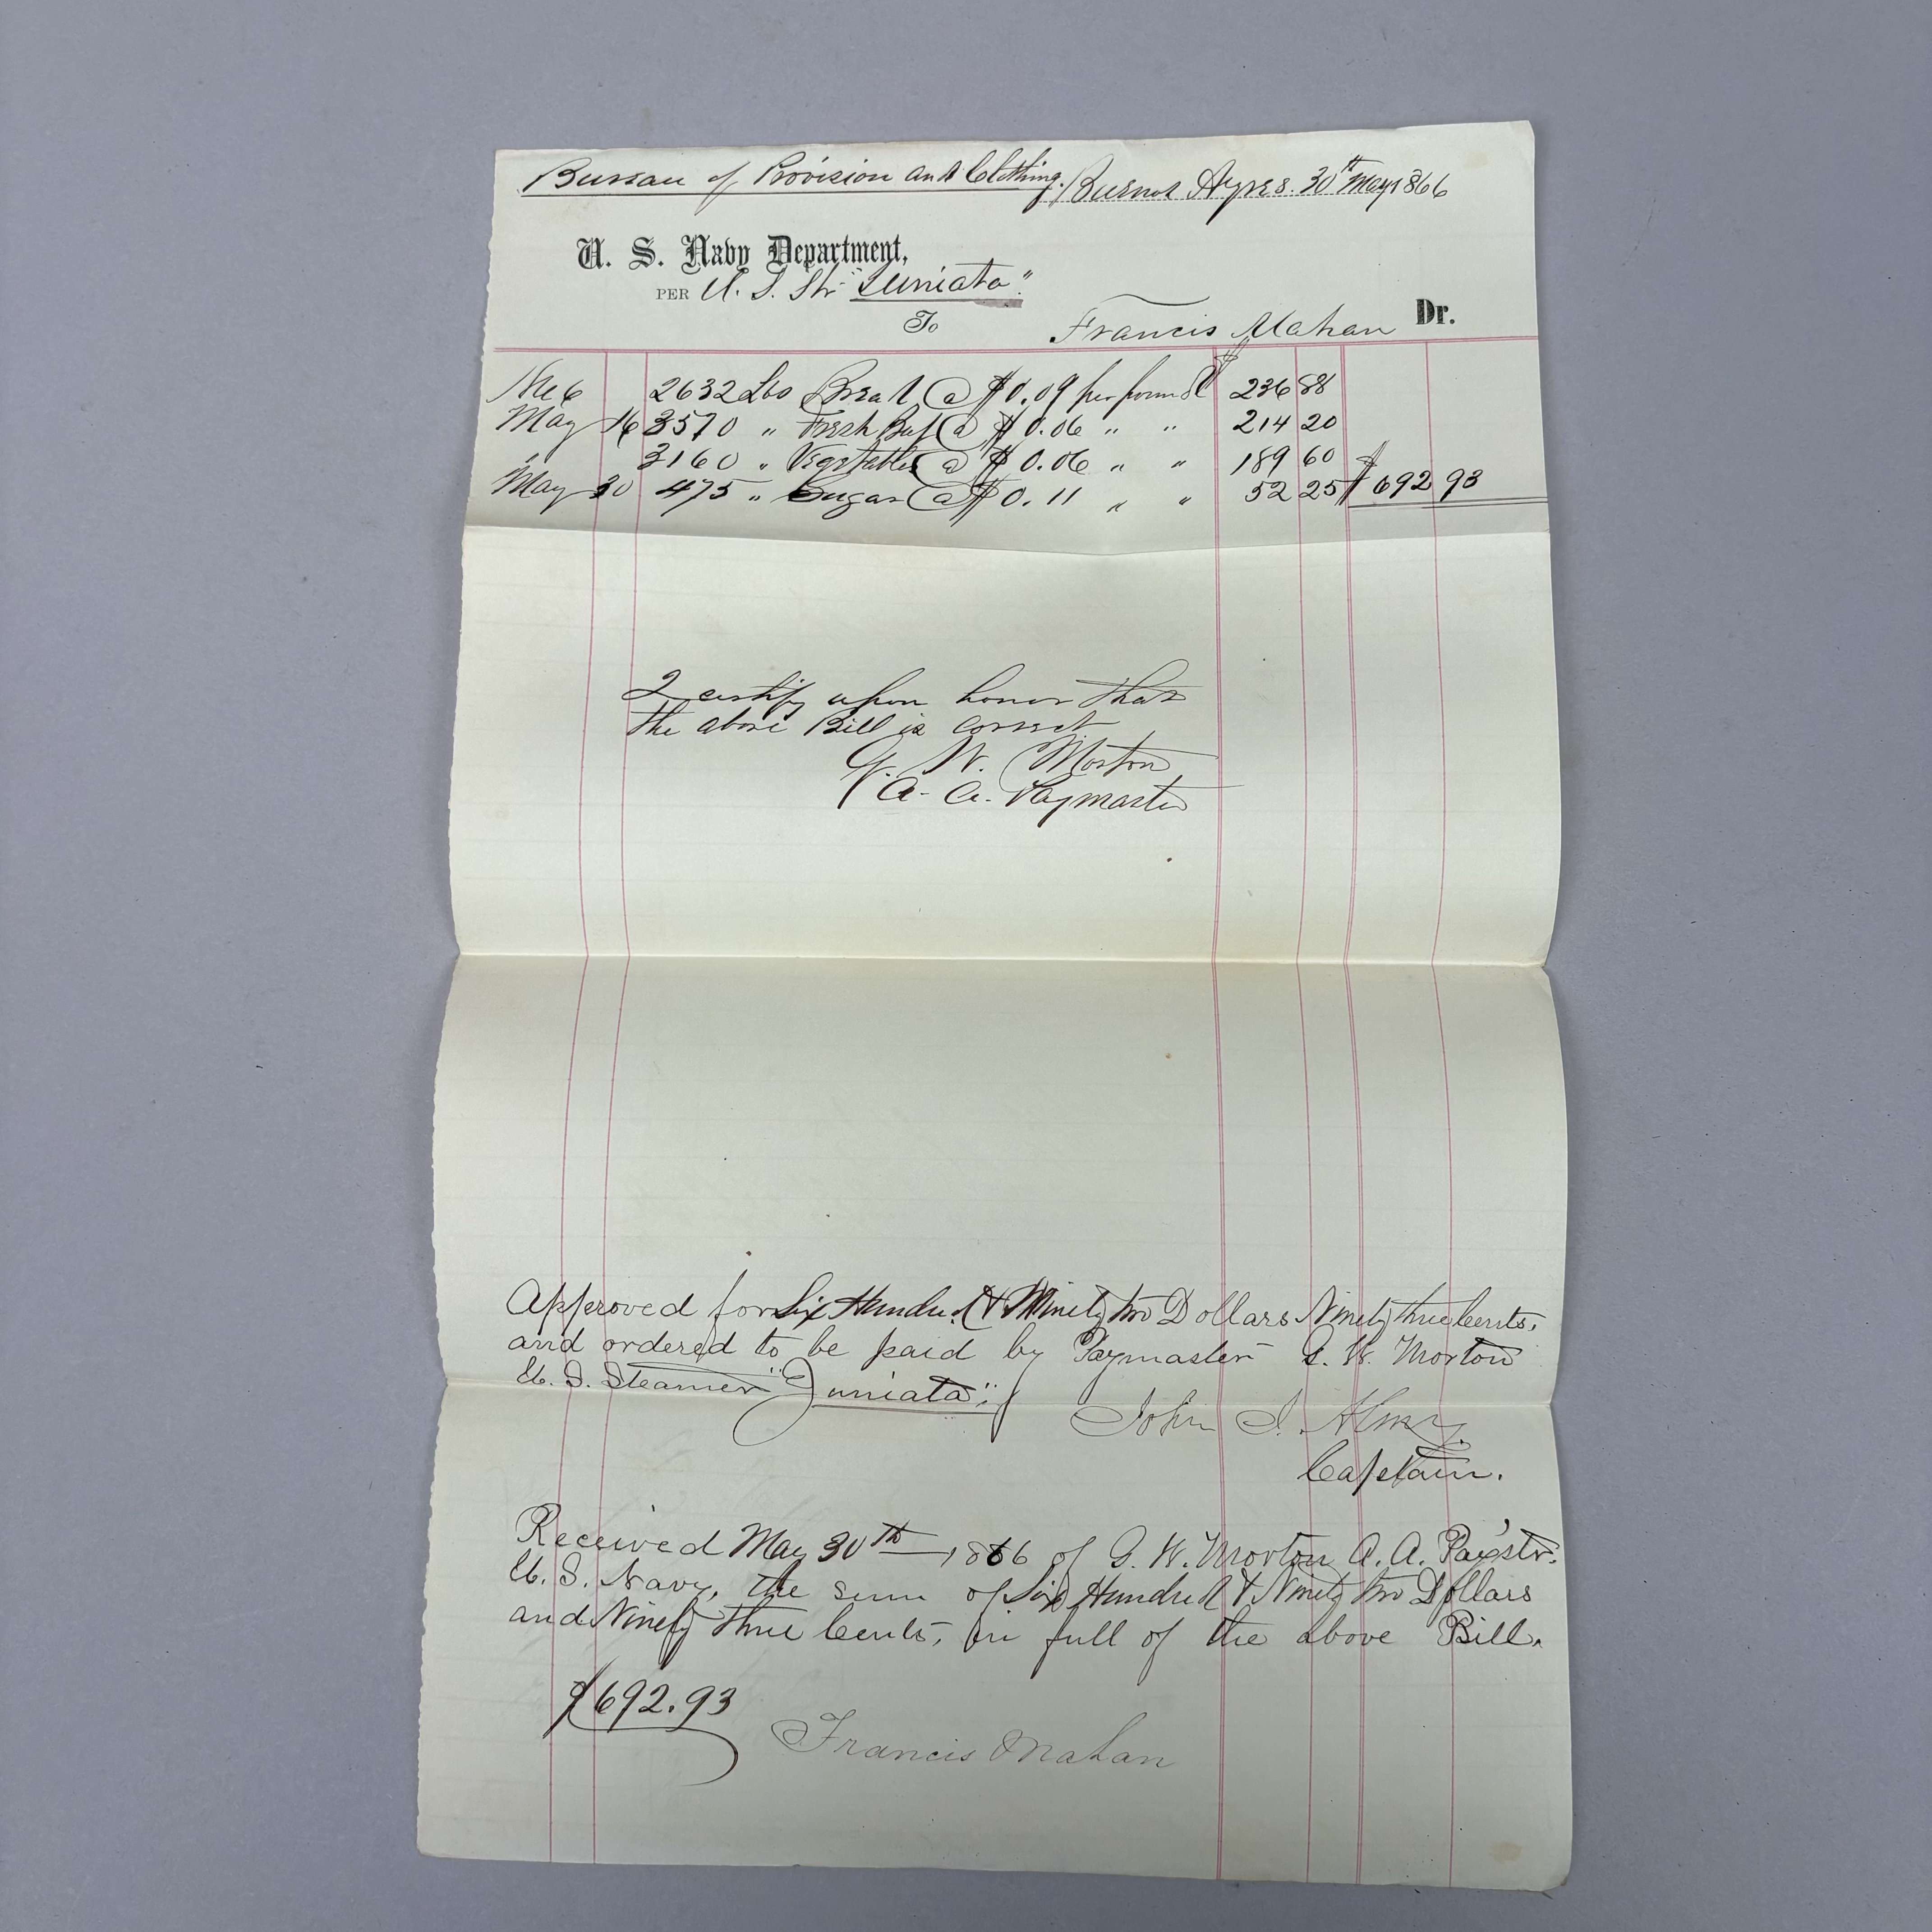 Bureau of Provision and Clothing. Buenos Ayres. 30th May 1866
U. S. Navy Department,
PER U. S. Str "Juniata"
To Francis Mahan Dr.
2632 Lbs Bread @ $0.09 per pound $ 236 88
May 16 3570 " Fresh Beef @ $0.06 " " 214 20
3160 " Vegetables @ $0.06 " " 189 60
May 30 475 " Sugar @ $0.11 " " 52 25 $ 692 93
I certify upon honor that
the above Bill is correct
G. W. Morton
A. A. Paymaster
Approved for Six Hundred & Ninety two Dollars Ninety three Cents,
and ordered to be paid by Paymaster G. W. Morton
U. S. Steamer "Juniata";
John J. Almy.
Captain.
Received May 30th 1866 of G. W. Morton A. A. Pay'str.
U. S. Navy, the sum of Six Hundred & Ninety two Dollars
and Ninety three Cents, in full of the above Bill.
$692.93
Francis Mahan